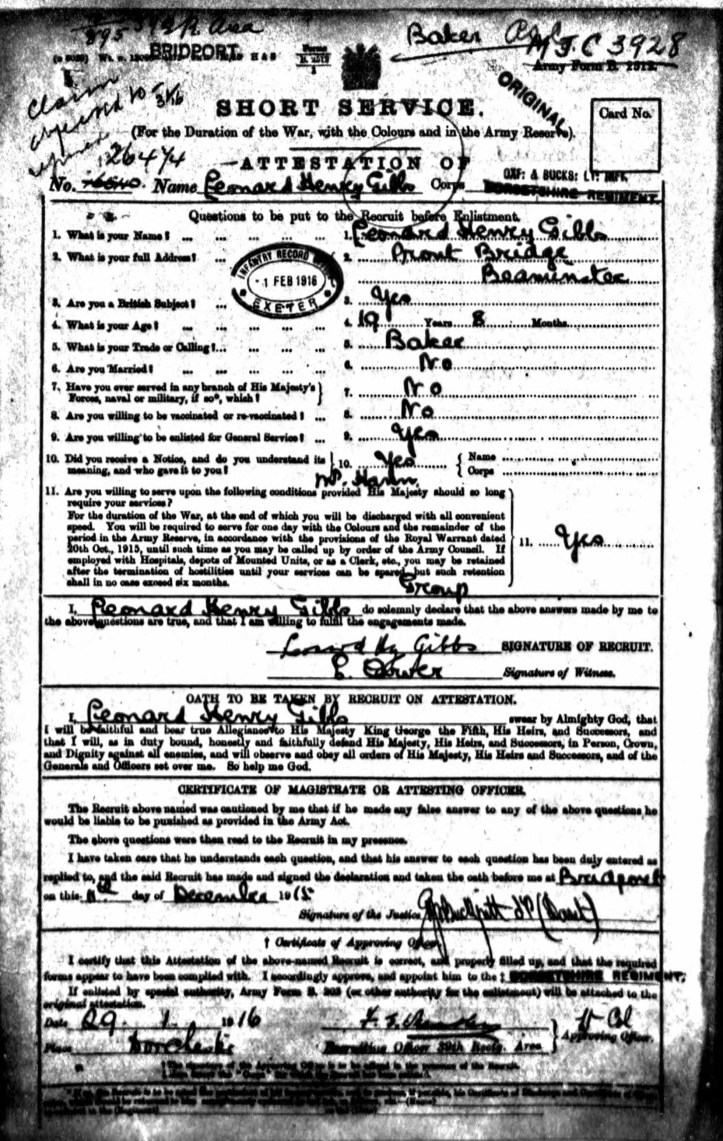 895 39th R. Area
BRIDPORT
Baker
M.T.C 3928
Army Form B. 2512.
Claim
objected to
26474
SHORT SERVICE.
ORIGINAL
Card No.
(For the Duration of the War, with the Colours and in the Army Reserve).
ATTESTATION OF
OXF: & BUCKS: LT: INF.
No. Name Leonard Henry Gibbs Corps DORSETSHIRE REGIMENT.
Questions to be put to the Recruit before Enlistment.
1. What is your Name? ... ... ... ... 1. Leonard Henry Gibbs
2. What is your full Address? ... ... 2. Prout Bridge
Beaminster
INFANTRY RECORD OFFICE
1 FEB 1916
EXETER
3. Are you a British Subject? ... 3. Yes
4. What is your Age? ... ... ... ... 4. 19 Years 8 Months.
5. What is your Trade or Calling? ... ... ... ... 5. Baker
6. Are you Married? ... ... ... ... 6. No
7. Have you ever served in any branch of His Majesty's
Forces, naval or military, if so*, which? 7. No
8. Are you willing to be vaccinated or re-vaccinated? ... ... 8. No
9. Are you willing to be enlisted for General Service? ... ... 9. Yes
10. Did you receive a Notice, and do you understand its
meaning, and who gave it to you? 10. Yes Name
Corps
11. Are you willing to serve upon the following conditions provided His Majesty should so long
require your services?
For the duration of the War, at the end of which you will be discharged with all convenient
speed. You will be required to serve for one day with the Colours and the remainder of the
period in the Army Reserve, in accordance with the provisions of the Royal Warrant dated
20th Oct., 1915, until such time as you may be called up by order of the Army Council. If
employed with Hospitals, depots of Mounted Units, or as a Clerk, etc., you may be retained
after the termination of hostilities until your services can be spared, but such retention
shall in no case exceed six months.
11. Yes
Group
I, Leonard Henry Gibbs do solemnly declare that the above answers made by me to
the above questions are true, and that I am willing to fulfil the engagements made.
Leonard Hy Gibbs SIGNATURE OF RECRUIT.
Signature of Witness.
OATH TO BE TAKEN BY RECRUIT ON ATTESTATION.
I, Leonard Henry Gibbs swear by Almighty God, that
I will be faithful and bear true Allegiance to His Majesty King George the Fifth, His Heirs, and Successors, and
that I will, as in duty bound, honestly and faithfully defend His Majesty, His Heirs, and Successors, in Person, Crown,
and Dignity against all enemies, and will observe and obey all orders of His Majesty, His Heirs and Successors, and of the
Generals and Officers set over me. So help me God.
CERTIFICATE OF MAGISTRATE OR ATTESTING OFFICER.
The Recruit above named was cautioned by me that if he made any false answer to any of the above questions he
would be liable to be punished as provided in the Army Act.
The above questions were then read to the Recruit in my presence.
I have taken care that he understands each question, and that his answer to each question has been duly entered as
replied to, and the said Recruit has made and signed the declaration and taken the oath before me at Bridport
on this day of December 1915
Signature of the Justice
† Certificate of Approving Officer.
I certify that this Attestation of the above-named Recruit is correct, and properly filled up, and that the required
forms appear to have been complied with. I accordingly approve, and appoint him to the ‡ DORSETSHIRE REGIMENT.
If enlisted by special authority, Army Form B. 203 (or other authority for the enlistment) will be attached to the
original attestation.
Date 29 . 1 . 1916 Lt Col
Approving Officer.
Place Dorchester Recruiting Officer 39th Recrtg. Area